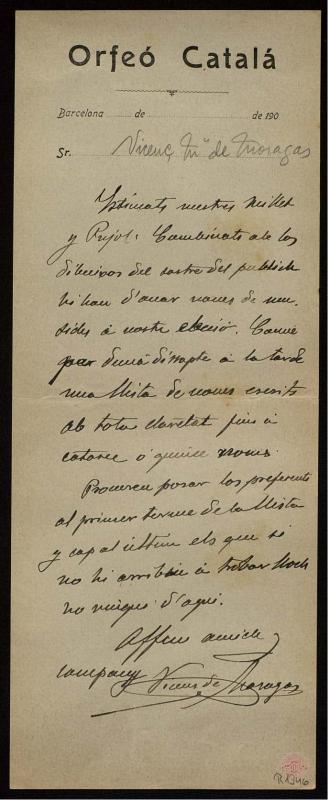 Orfeó Catalá
Barcelona de de 190
Sr. Vicenç Mª de Moragas
Estimats mestres Millet
y Pujol: Combinats ab los
dibuixos del sostre del
hi han d'anar noms de mu-
sichs á nostre elecció. Convé
demá dissapte á la tarde
una llista de noms escrits
ab tota claretat fins á
catorce ó quince noms.
Procureu posar los preferents
al primer terme de la llista
y cap al últim els que si
no hi arribin á trobar lloch
no vingui d'aquí.
Affm amich
company Vicens de Moragas
R 1346